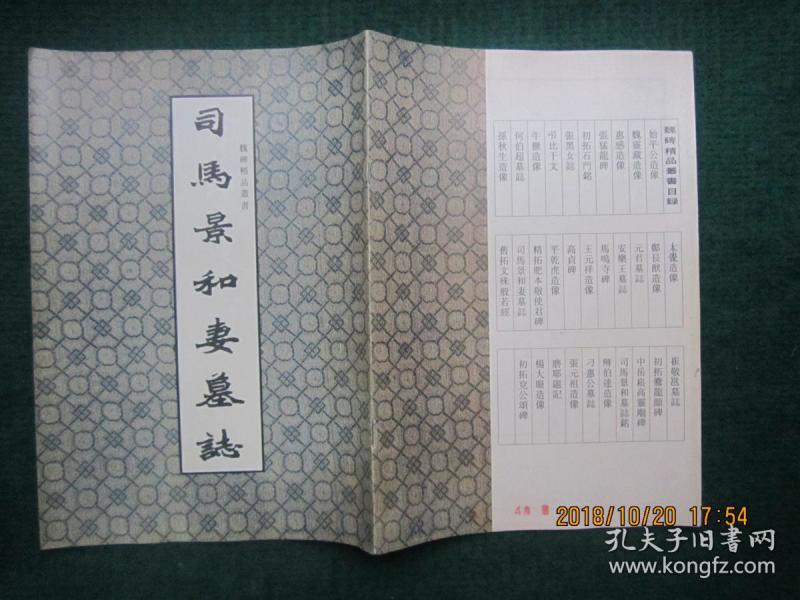 司馬景和妻墓誌
魏碑精品叢書
魏碑精品叢書目録
始平公造像
魏靈藏造像
惠感造像
張猛龍碑
初拓石門銘
張黑女誌
弔比干文
牛橛造像
何伯超墓誌
孫秋生造像
太妃造像
鄭長猷造像
元君墓誌
安樂王墓誌
馬鳴寺碑
王元祥造像
高貞碑
平乾虎造像
精拓肥本敬使君碑
司馬景和妻墓誌
舊拓文殊般若經
崔敬邕墓誌
初拓爨龍顔碑
中岳嵩高靈廟碑
司馬景和墓誌銘
解伯達造像
刁惠公墓誌
張元祖造像
磨耶題記
楊大眼造像
初拓兗公頌碑
2018/10/20 17:54
孔夫子旧書网
www.kongfz.com